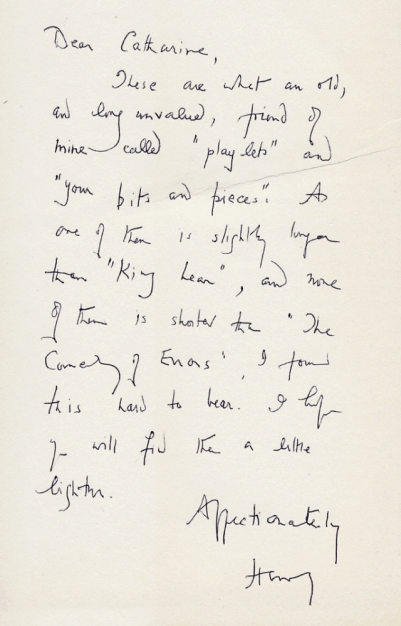 Dear Catharine,
These are what an old,
and long unvalued, friend of
mine called "playlets" and
"your bits and pieces". As
one of them is slightly longer
than "King Lear", and none
of them is shorter than "The
Comedy of Errors", I found
this hard to bear. I hope
you will find them a little
lighter.
Affectionately
Henry